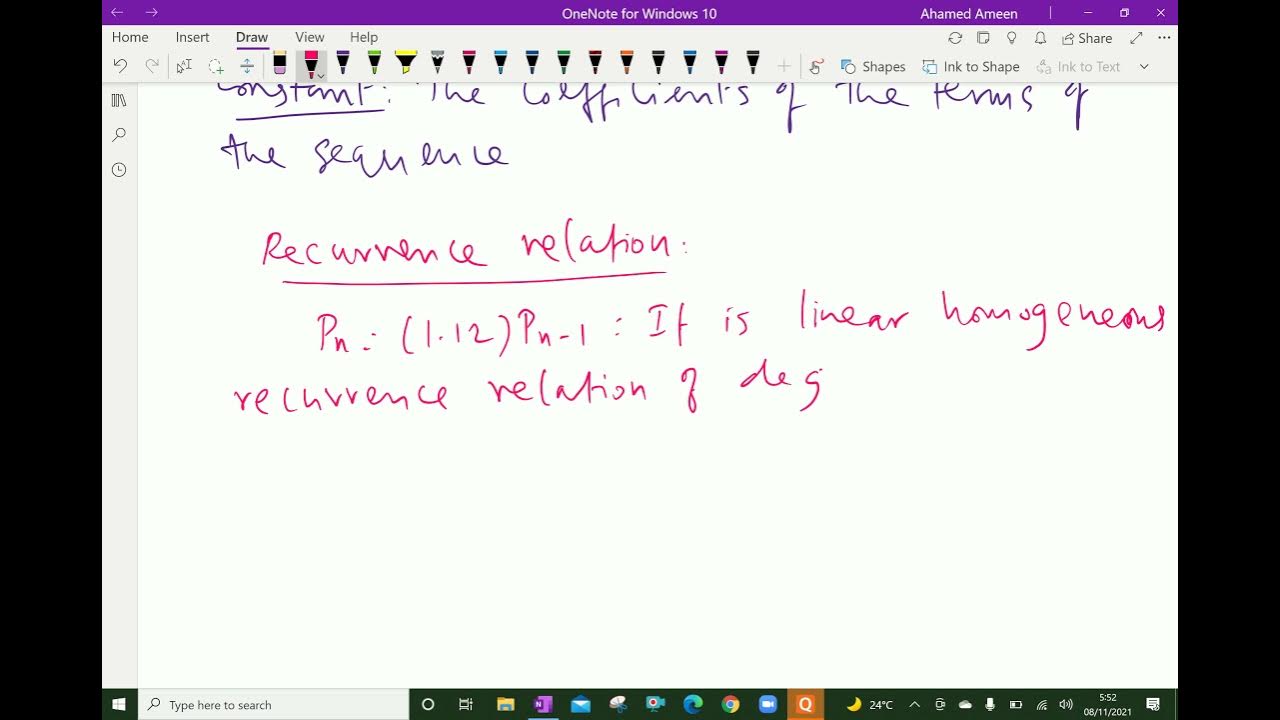 OneNote for Windows 10
Ahamed Ameen
Home Insert Draw View Help
Share
Shapes Ink to Shape Ink to Text
Constant: The coefficients of the terms of
the sequence
Recurrence relation:
Pn = (1.12)Pn-1 : It is linear homogeneous
recurrence relation of deg
Type here to search
Q
24°C
5:52
08/11/2021